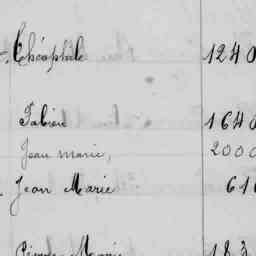 Théophile 1240
Fabien 1640
Jean marie, 2000
Jean Marie 61
183